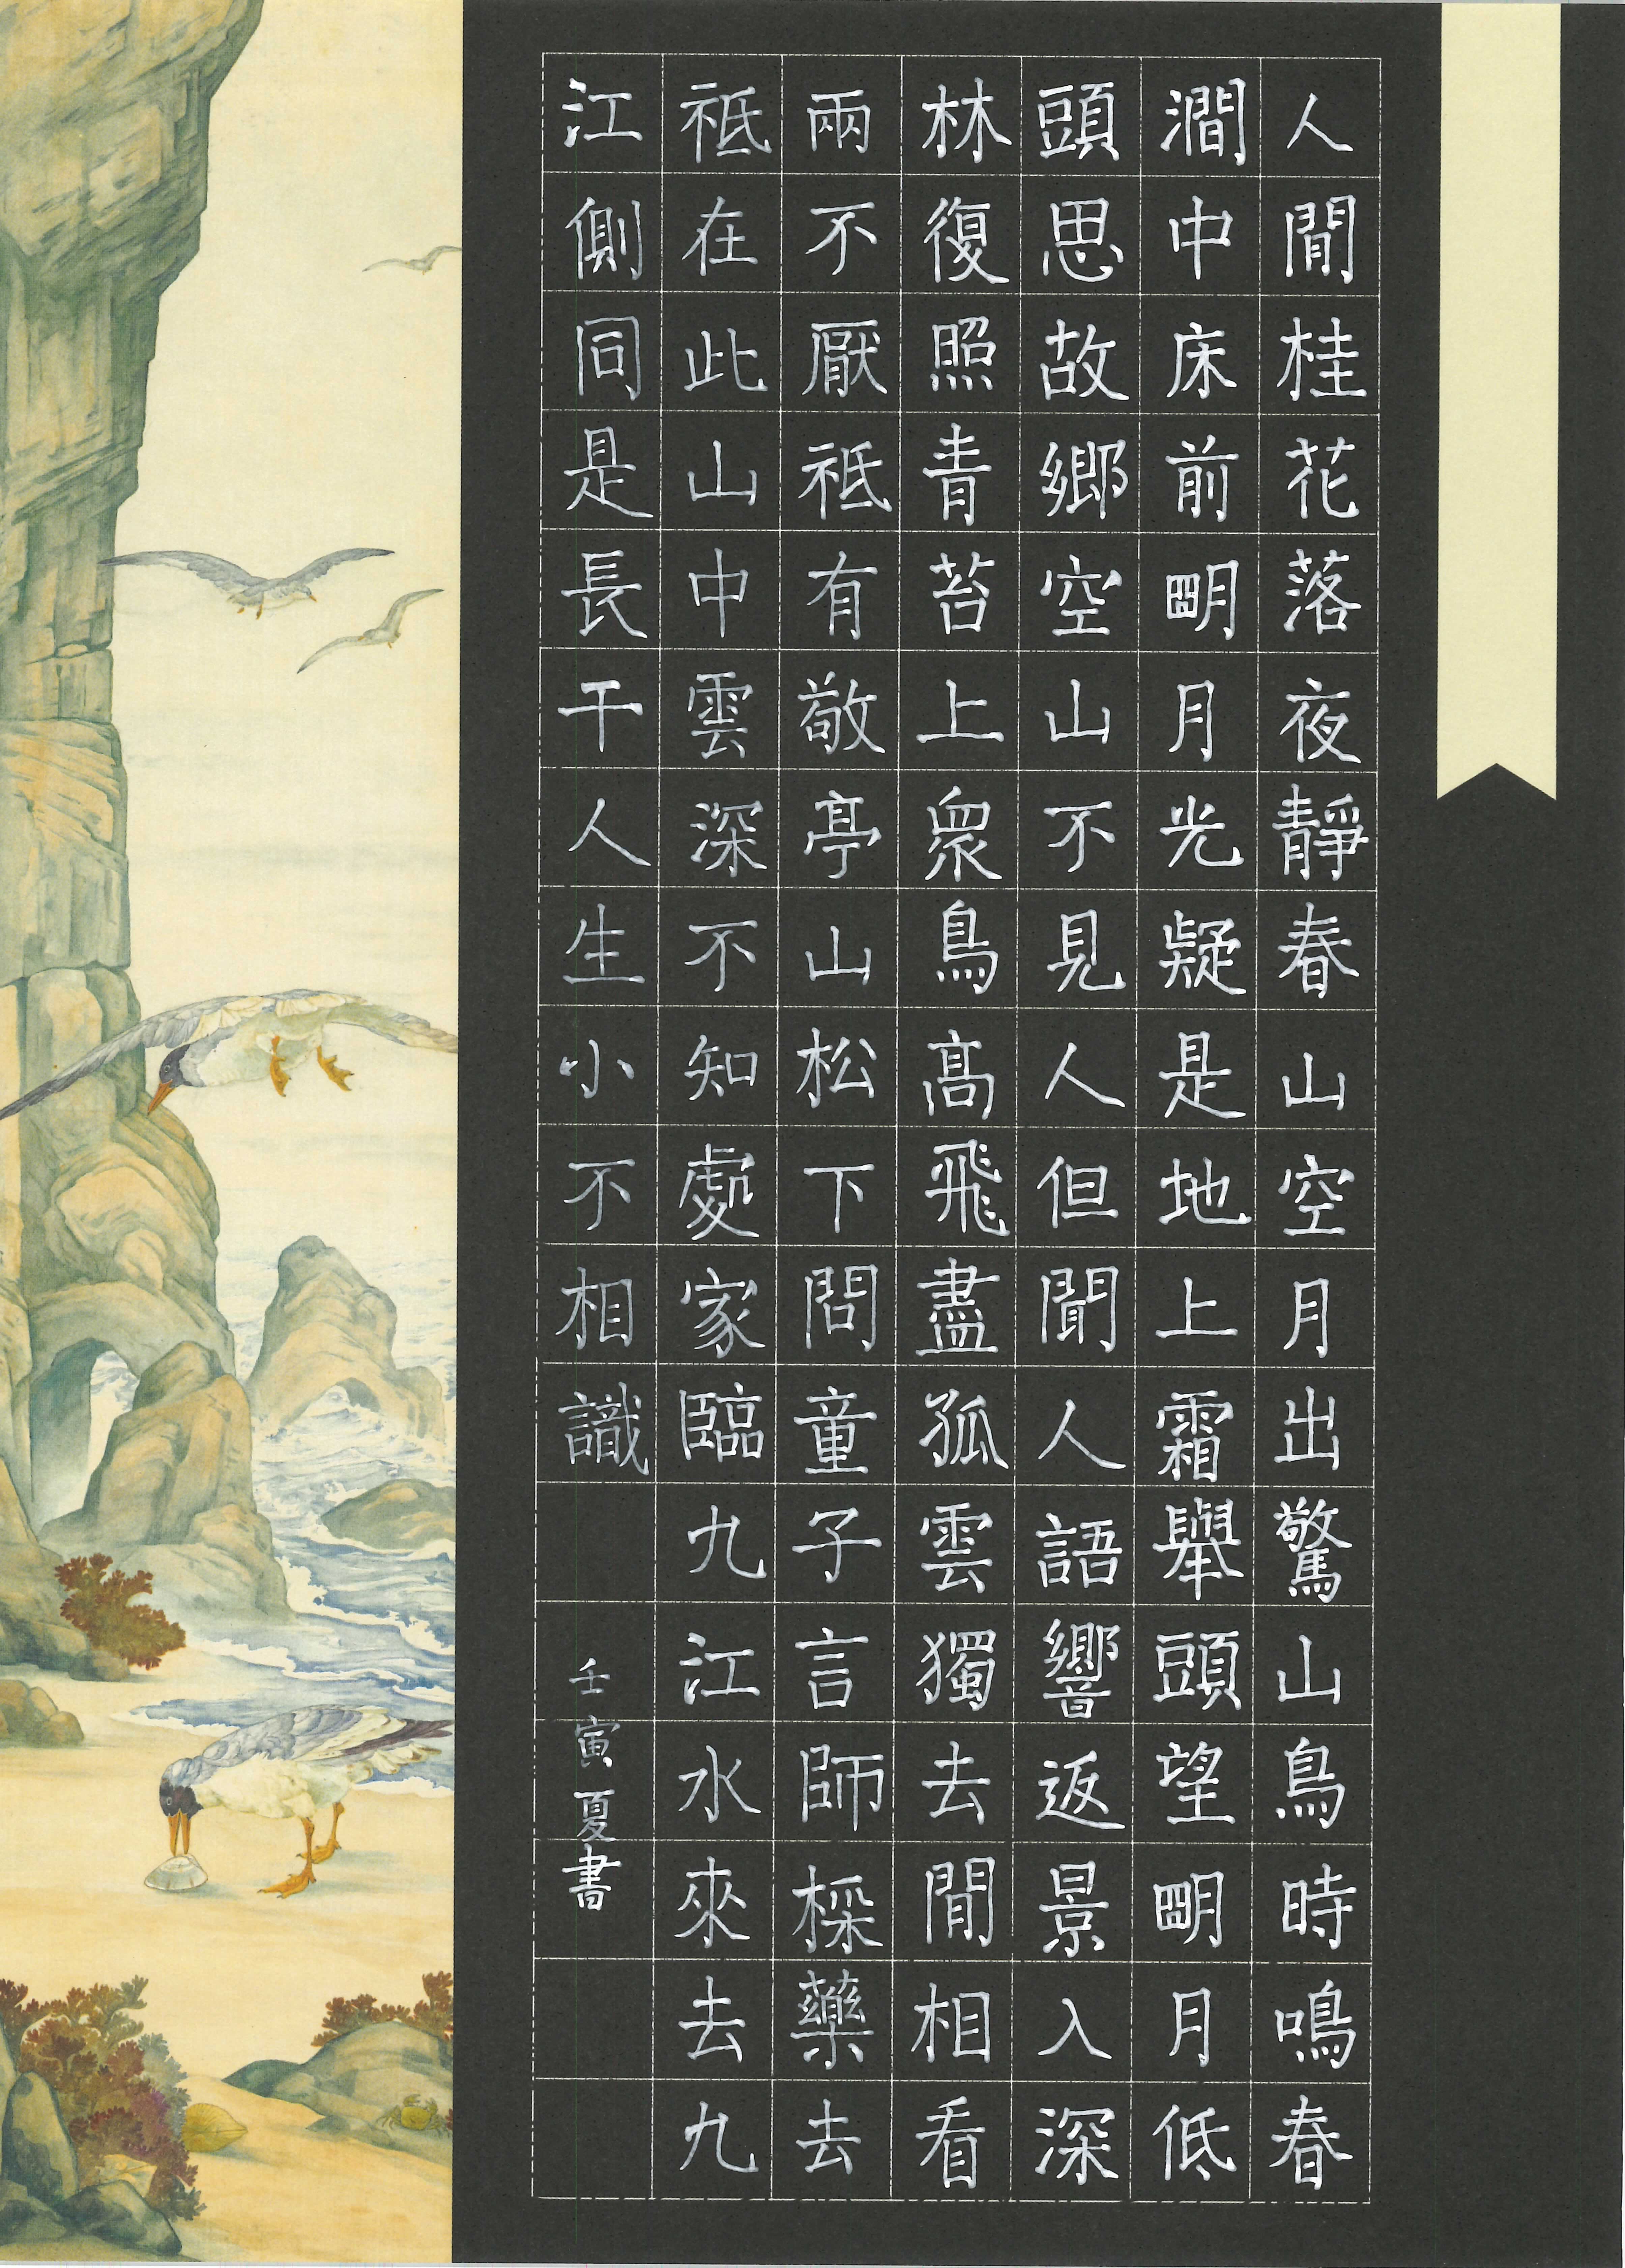 人閒桂花落夜靜春山空月出驚山鳥時鳴春
澗中床前朙月光疑是地上霜舉頭望朙月低
頭思故鄉空山不見人但聞人語響返景入深
林復照青苔上衆鳥高飛盡孤雲獨去閒相看
兩不厭祗有敬亭山松下問童子言師採藥去
祗在此山中雲深不知處家臨九江水來去九
江側同是長干人生小不相識
壬寅夏書